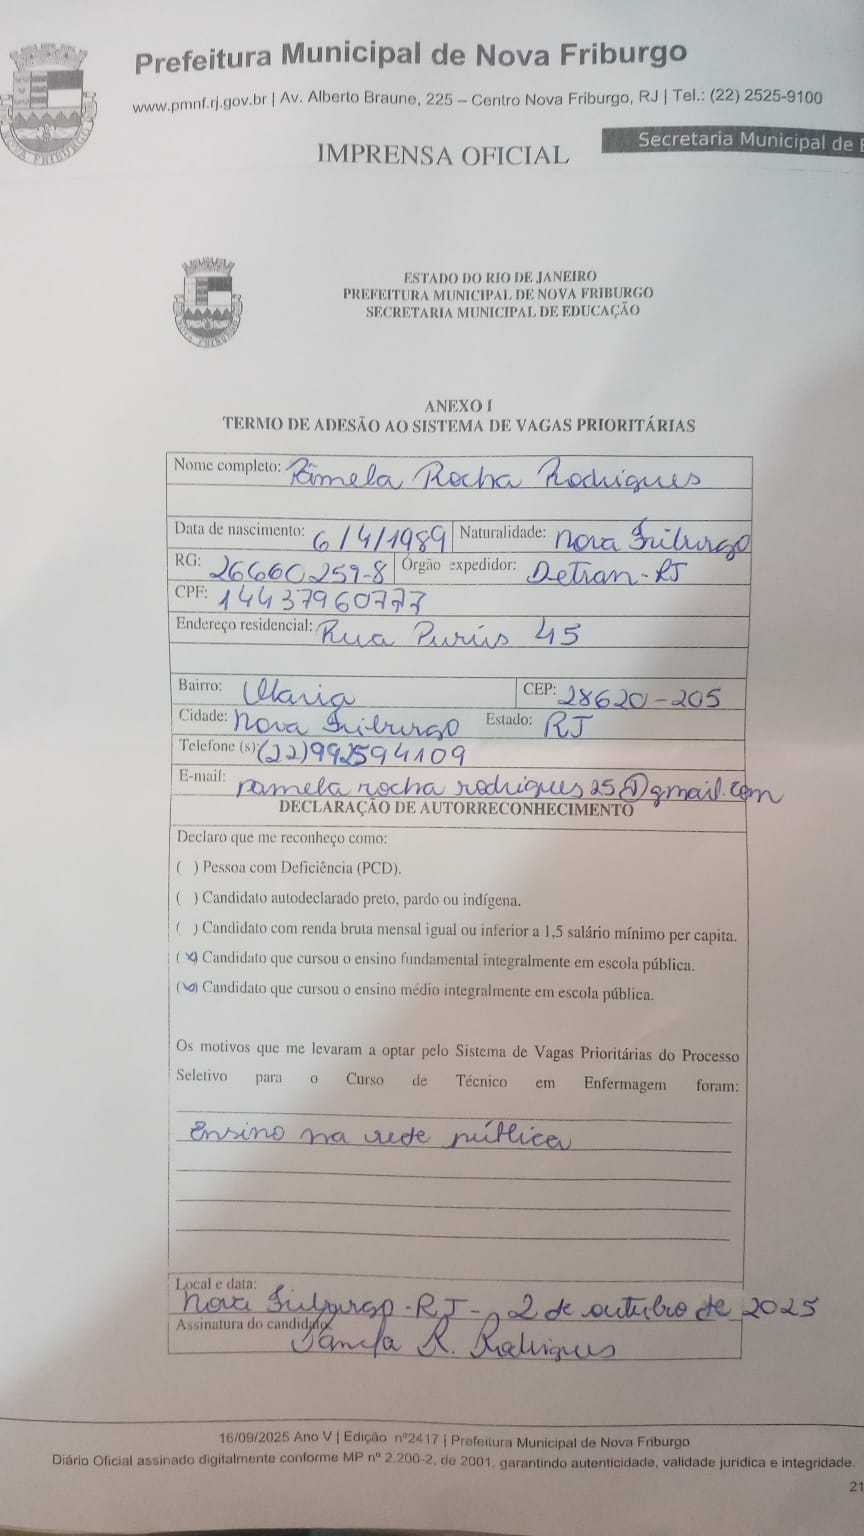 Prefeitura Municipal de Nova Friburgo
www.pmnf.rj.gov.br | Av. Alberto Braune, 225 – Centro Nova Friburgo, RJ | Tel.: (22) 2525-9100
Secretaria Municipal de E
IMPRENSA OFICIAL
NOVA FRIBURGO
ESTADO DO RIO DE JANEIRO
PREFEITURA MUNICIPAL DE NOVA FRIBURGO
SECRETARIA MUNICIPAL DE EDUCAÇÃO
ANEXO I
TERMO DE ADESÃO AO SISTEMA DE VAGAS PRIORITÁRIAS
Nome completo: Pâmela Rocha Rodrigues
Data de nascimento: 6/4/1989 Naturalidade: Nova Friburgo
RG: 26660259-8 Órgão expedidor: Detran-RJ
CPF: 14437960777
Endereço residencial: Rua Purús 45
Bairro: Olaria CEP: 28620-205
Cidade: Nova Friburgo Estado: RJ
Telefone (s) (22)992594109
E-mail: pamela rocha rodrigues25@gmail.com
DECLARAÇÃO DE AUTORRECONHECIMENTO
Declaro que me reconheço como:
( ) Pessoa com Deficiência (PCD).
( ) Candidato autodeclarado preto, pardo ou indígena.
( ) Candidato com renda bruta mensal igual ou inferior a 1,5 salário mínimo per capita.
(x) Candidato que cursou o ensino fundamental integralmente em escola pública.
(x) Candidato que cursou o ensino médio integralmente em escola pública.
Os motivos que me levaram a optar pelo Sistema de Vagas Prioritárias do Processo
Seletivo para o Curso de Técnico em Enfermagem foram:
Ensino na rede pública
Local e data:
Nova Friburgo-RJ- 2 de outubro de 2025
Assinatura do candidato:
Pamela R. Rodrigues
16/09/2025 Ano V | Edição nº2417 | Prefeitura Municipal de Nova Friburgo
Diário Oficial assinado digitalmente conforme MP nº 2.200-2, de 2001, garantindo autenticidade, validade jurídica e integridade.
21